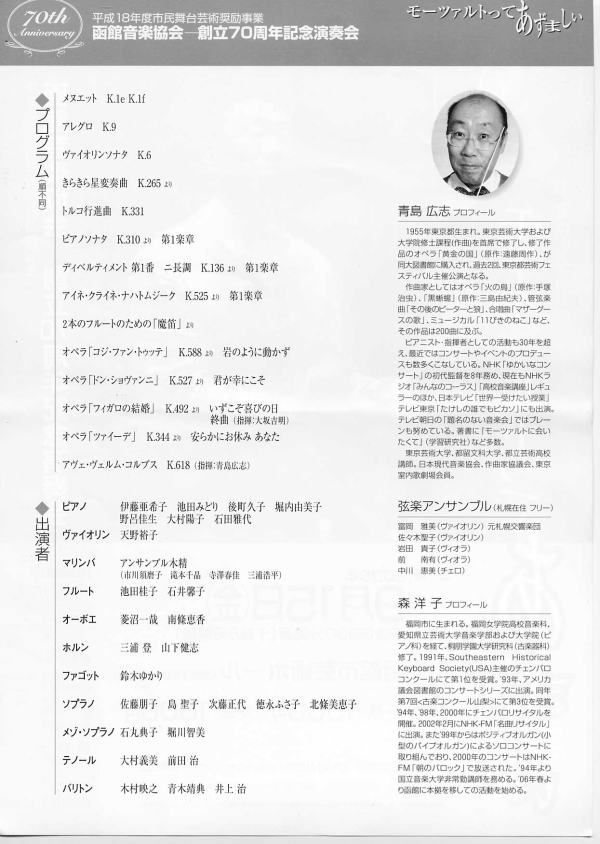 70th Anniversary
平成18年度市民舞台芸術奨励事業
函館音楽協会―創立70周年記念演奏会
モーツァルトって あずましい
◆プログラム(順不同)
メヌエット K.1e K.1f
アレグロ K.9
ヴァイオリンソナタ K.6
きらきら星変奏曲 K.265 より
トルコ行進曲 K.331
ピアノソナタ K.310 より 第1楽章
ディベルティメント 第1番 ニ長調 K.136 より 第1楽章
アイネ・クライネ・ナハトムジーク K.525 より 第1楽章
2本のフルートのための「魔笛」より
オペラ「コジ・ファン・トゥッテ」 K.588 より 岩のように動かず
オペラ「ドン・ジョヴァンニ」 K.527 より 君が幸にこそ
オペラ「フィガロの結婚」 K.492 より いずこぞ喜びの日
終曲(指揮:大坂吉明)
オペラ「ツァイーデ」 K.344 より 安らかにお休み あなた
アヴェ・ヴェルム・コルプス K.618(指揮:青島広志)
◆出演者
ピアノ 伊藤亜希子 池田みどり 後町久子 堀内由美子
野呂佳生 大村陽子 石田雅代
ヴァイオリン 天野裕子
マリンバ アンサンブル水精
(市川須磨子 滝本千晶 寺澤春佳 三浦浩平)
フルート 池田桂子 石井馨子
オーボエ 菱沼一哉 南條恵香
ホルン 三浦 登 山下健志
ファゴット 鈴木ゆかり
ソプラノ 佐藤朋子 島 聖子 次藤正代 徳永ふさ子 北條美恵子
メゾ・ソプラノ 石丸典子 堀川智美
テノール 大村義美 前田 治
バリトン 木村映之 青木靖典 井上 治
青島 広志 プロフィール
1955年東京都生まれ。東京芸術大学および
大学院修士課程(作曲)を首席で修了し、修了作
品のオペラ「黄金の国」(原作:遠藤周作)、が
同大図書館に購入され、過去2回、東京都芸術フェ
スティバル主催公演となる。
作曲家としてはオペラ「火の鳥」(原作:手塚
治虫)、「黒蜥蜴」(原作:三島由紀夫)、管弦楽
曲「その後のピーターと狼」、合唱曲「マザーグー
スの歌」、ミュージカル「11ぴきのねこ」など、
その作品は200曲に及ぶ。
ピアニスト・指揮者としての活動も30年を超
え、最近ではコンサートやイベントのプロデュー
スも数多くこなしている。NHK「ゆかいなコン
サート」の初代監督を8年務め、現在もNHKラ
ジオ「みんなのコーラス」「高校音楽講座」レギュ
ラーのほか、日本テレビ「世界一受けたい授業」
テレビ東京「たけしの誰でもピカソ」にも出演。
テレビ朝日の「題名のない音楽会」ではブレー
ンも努めている。著書に「モーツァルトに会い
たくて」(学習研究社)など多数。
東京芸術大学、都留文科大学、都立芸術高校
講師。日本現代音楽協会、作曲家協議会、東京
室内歌劇場会員。
弦楽アンサンブル(札幌在住 フリー)
富岡 雅美(ヴァイオリン) 元札幌交響楽団
佐々木聖子(ヴァイオリン)
岩田 貴子(ヴィオラ)
前 南有(ヴィオラ)
中川 恵美(チェロ)
森 洋子 プロフィール
福岡市に生まれる。福岡女学院高校音楽科、
愛知県立芸術大学音楽学部および大学院(ピ
アノ科)を経て、桐朋学園大学研究科(古楽器科)
修了。1991年、Southeastern Historical
Keyboard Society(USA)主催のチェンバロ
コンクールにて第1位を受賞。'93年、アメリカ
議会図書館のコンサートシリーズに出演。同年
第7回<古楽コンクール山梨>にて第3位を受賞。
'94年、'98年、2000年にチェンバロリサイタルを
開催。2002年2月にNHK-FM「名曲リサイタル」
に出演。また'99年からはポジティブオルガン(小
型のパイプオルガン)によるソロコンサートに
取り組んでおり、2000年のコンサートはNHK-
FM「朝のバロック」で放送された。'94年より
国立音楽大学非常勤講師を務める。'06年春よ
り函館に本拠を移しての活動を始める。